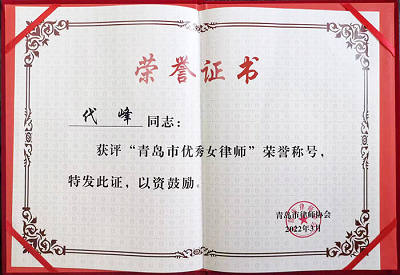 荣誉证书
代峰 同志：
获评“青岛市优秀女律师”荣誉称号，
特发此证，以资鼓励。
青岛市律师协会
2022年3月